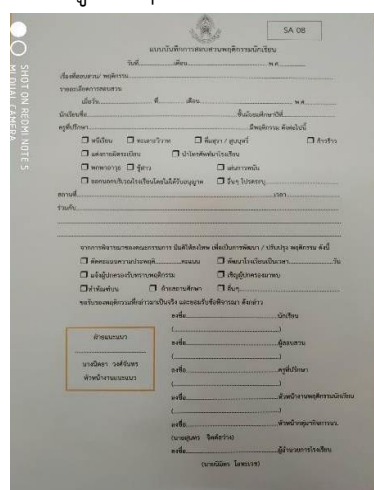 SA 08
แบบบันทึกการสอบสวนพฤติกรรมนักเรียน
วันที่..........เดือน....................พ.ศ..........
เรื่องที่สอบสวน/ พฤติกรรม....................
รายละเอียดการสอบสวน
เมื่อวัน..........ที่..........เดือน....................พ.ศ..........
นักเรียนชื่อ....................ชั้นมัธยมศึกษาปีที่..........
ครูที่ปรึกษา....................มีพฤติกรรม ดังต่อไปนี้
☐ หนีเรียน ☐ ทะเลาะวิวาท ☐ ดื่มสุรา / สูบบุหรี่ ☐ ก้าวร้าว
☐ แต่งกายผิดระเบียบ ☐ นำโทรศัพท์มาโรงเรียน
☐ พกพาอาวุธ ☐ ชู้สาว ☐ เล่นการพนัน
☐ ออกนอกบริเวณโรงเรียนโดยไม่ได้รับอนุญาต ☐ อื่นๆ โปรดระบุ..........
สถานที่....................เวลา..........
ร่วมกับ....................
จากการพิจารณาของคณะกรรมการ มีมติให้ลงโทษ เพื่อเป็นการพัฒนา / ปรับปรุง พฤติกรรม ดังนี้
☐ ตัดคะแนนความประพฤติ..........คะแนน ☐ พัฒนาโรงเรียนเป็นเวลา..........วัน
☐ แจ้งผู้ปกครองรับทราบพฤติกรรม ☐ เชิญผู้ปกครองมาพบ
☐ ทำทัณฑ์บน ☐ ย้ายสถานศึกษา ☐ อื่นๆ..........
ขอรับรองพฤติกรรมที่กล่าวมาเป็นจริง และยอมรับข้อพิจารณา ดังกล่าว
ลงชื่อ....................นักเรียน
(....................)
ลงชื่อ....................ผู้สอบสวน
(....................)
ลงชื่อ....................ครูที่ปรึกษา
(....................)
ลงชื่อ....................หัวหน้างานพฤติกรรมนักเรียน
(....................)
ลงชื่อ....................หัวหน้ากลุ่มกิจการนร.
ลงชื่อ....................ผู้อำนวยการโรงเรียน
ฝ่ายแนะแนว
หัวหน้างานแนะแนว
SHOT ON REDMI NOTE 5
MI DUAL CAMERA